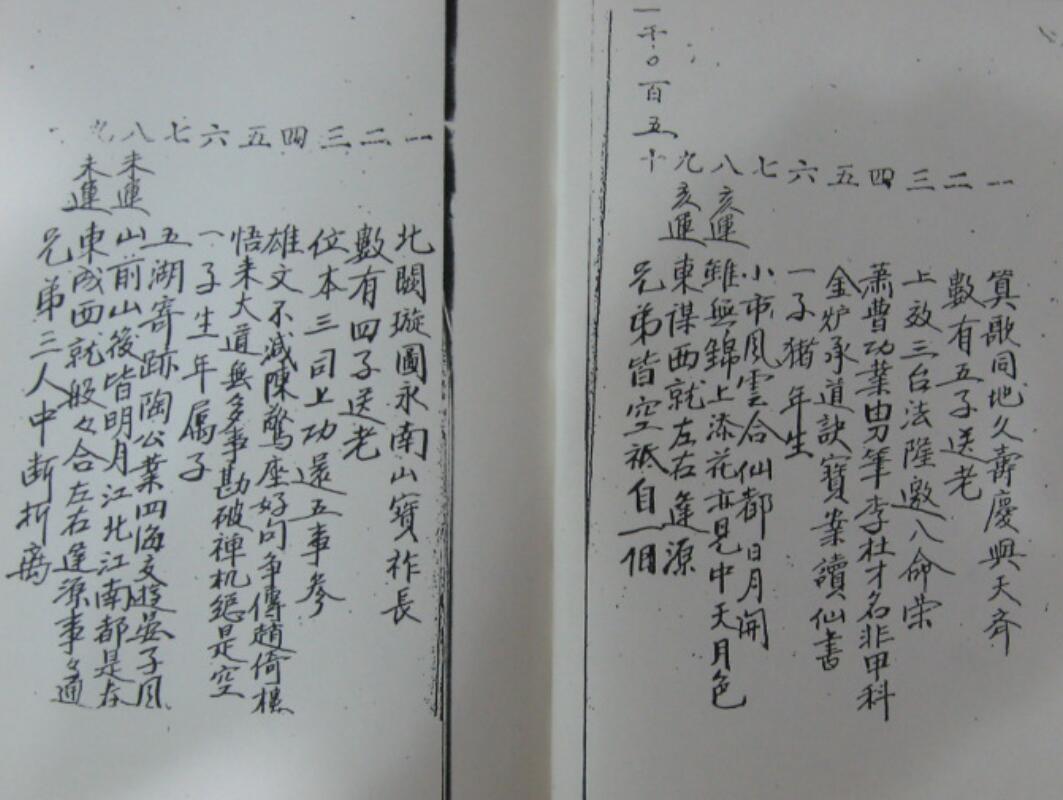 一千○百五
一 算歌同地久壽慶與天齊
二 數有五子送老
三 上效三台法隆邀八命荣
四 蕭曹功業由刀筆李杜才名非甲科
五 金炉承道訣寶案讀仙書
六 一子猪年生
七 小市風雲合仙都日月開
八 亥運 雖無錦上添花亦見中天月色
九 亥運 東謀西就左右逢源
十 兄弟皆空祗自一個
一 北闕璇圖永南山寶祚長
二 數有四子送老
三 位本三司上功還五事參
四 雄文不減陳驚座好句争傳趙倚樓
五 悟来大道無多事勘破禅机總是空
六 一子生年属子
七 五湖寄跡陶公業四海交遊晏子風
八 未運 山前山後皆明月江北江南都是春
九 未運 東成西就般々合左右逢源事々通
兄弟三人中断折离